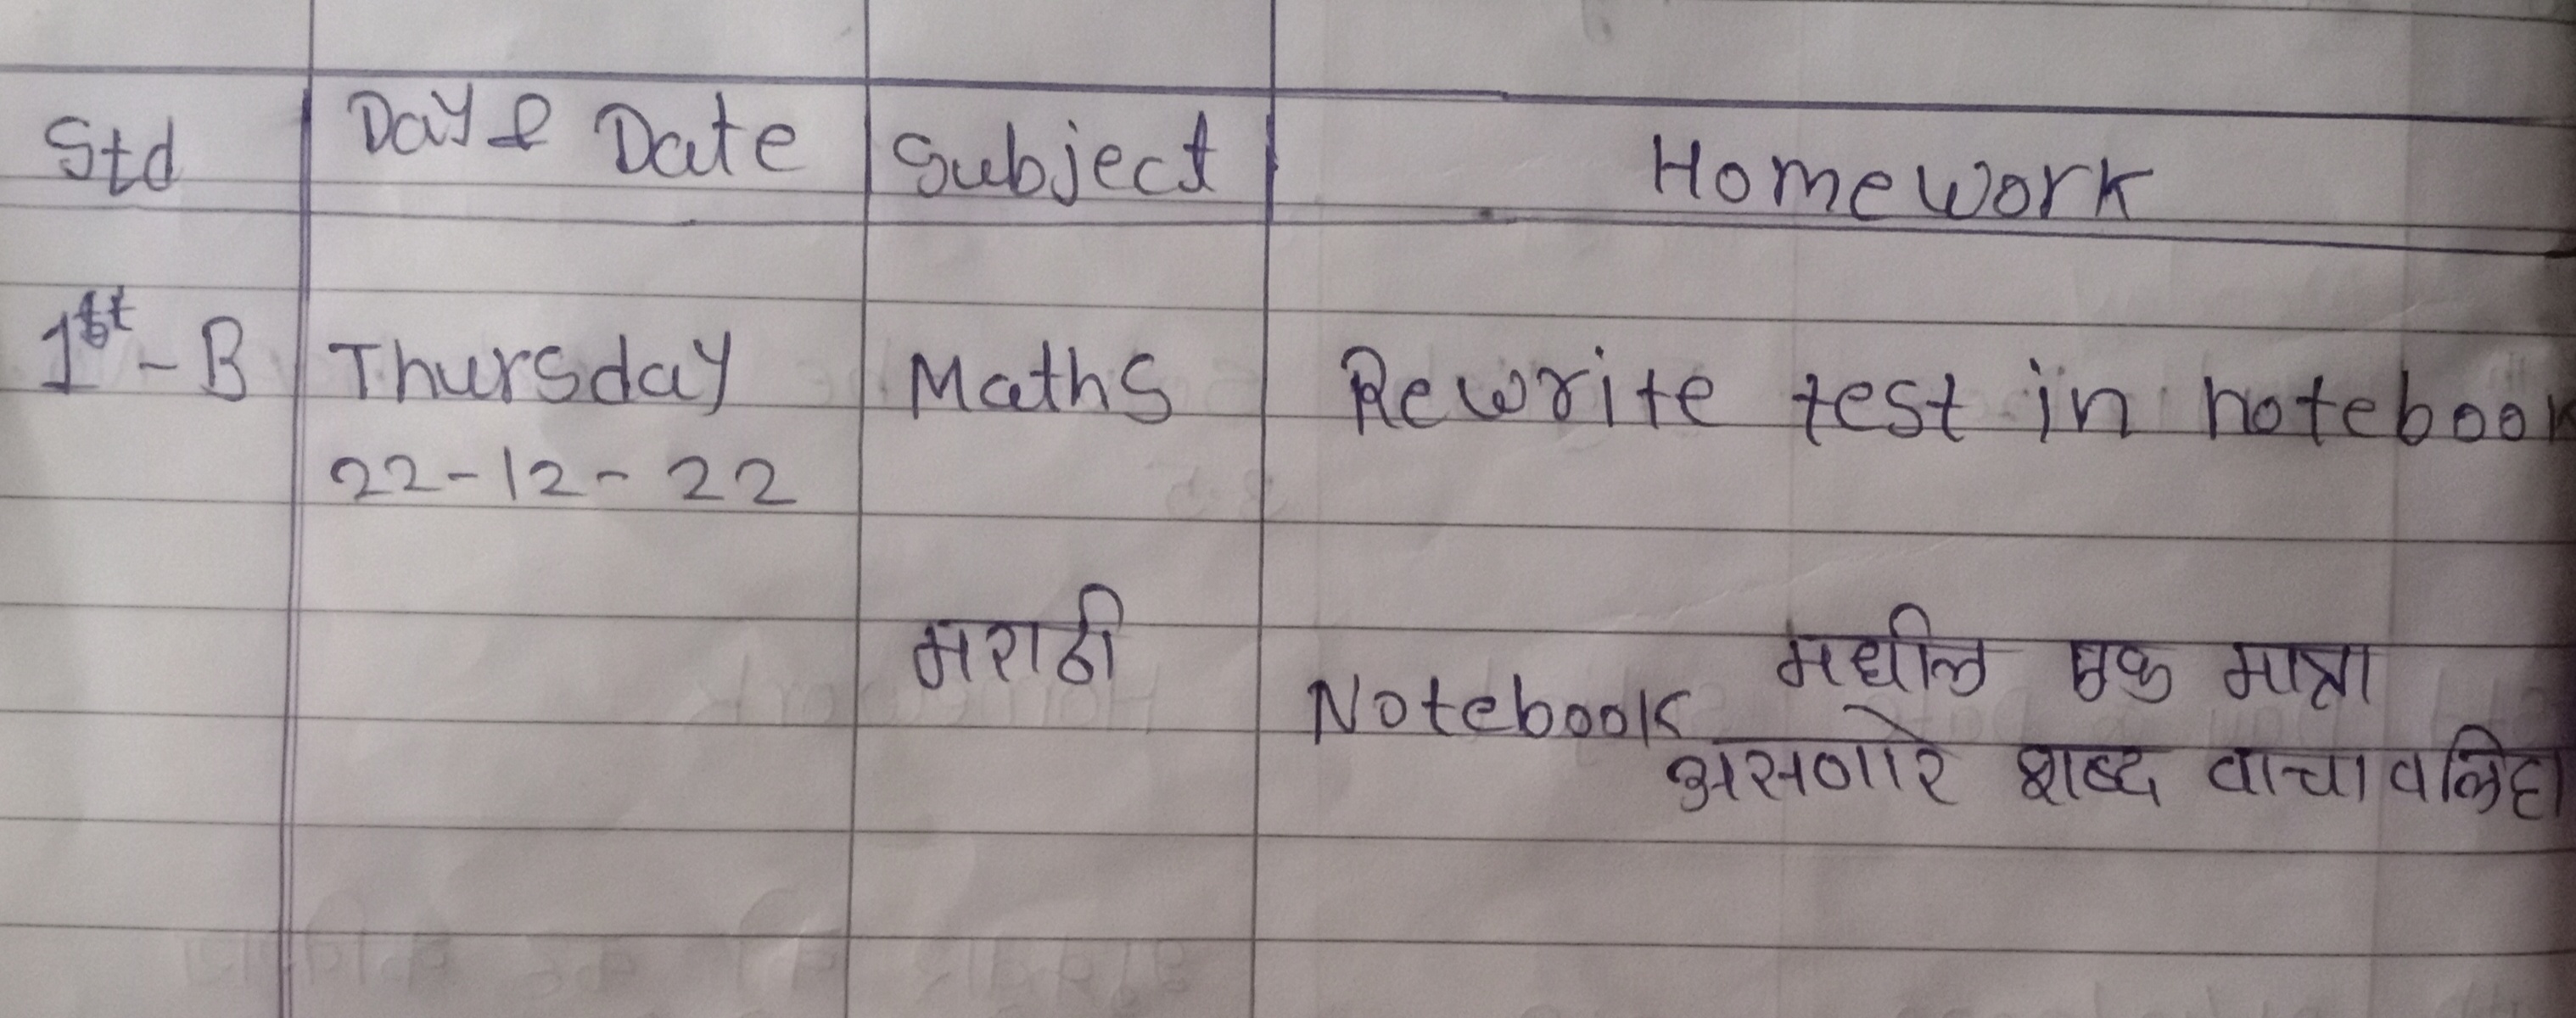 Std Day & Date Subject Homework
1st - B Thursday Maths Rewrite test in notebook
22-12-22
मराठी Notebook मधील एक मात्रा
असणारे शब्द वाचा व लिहा